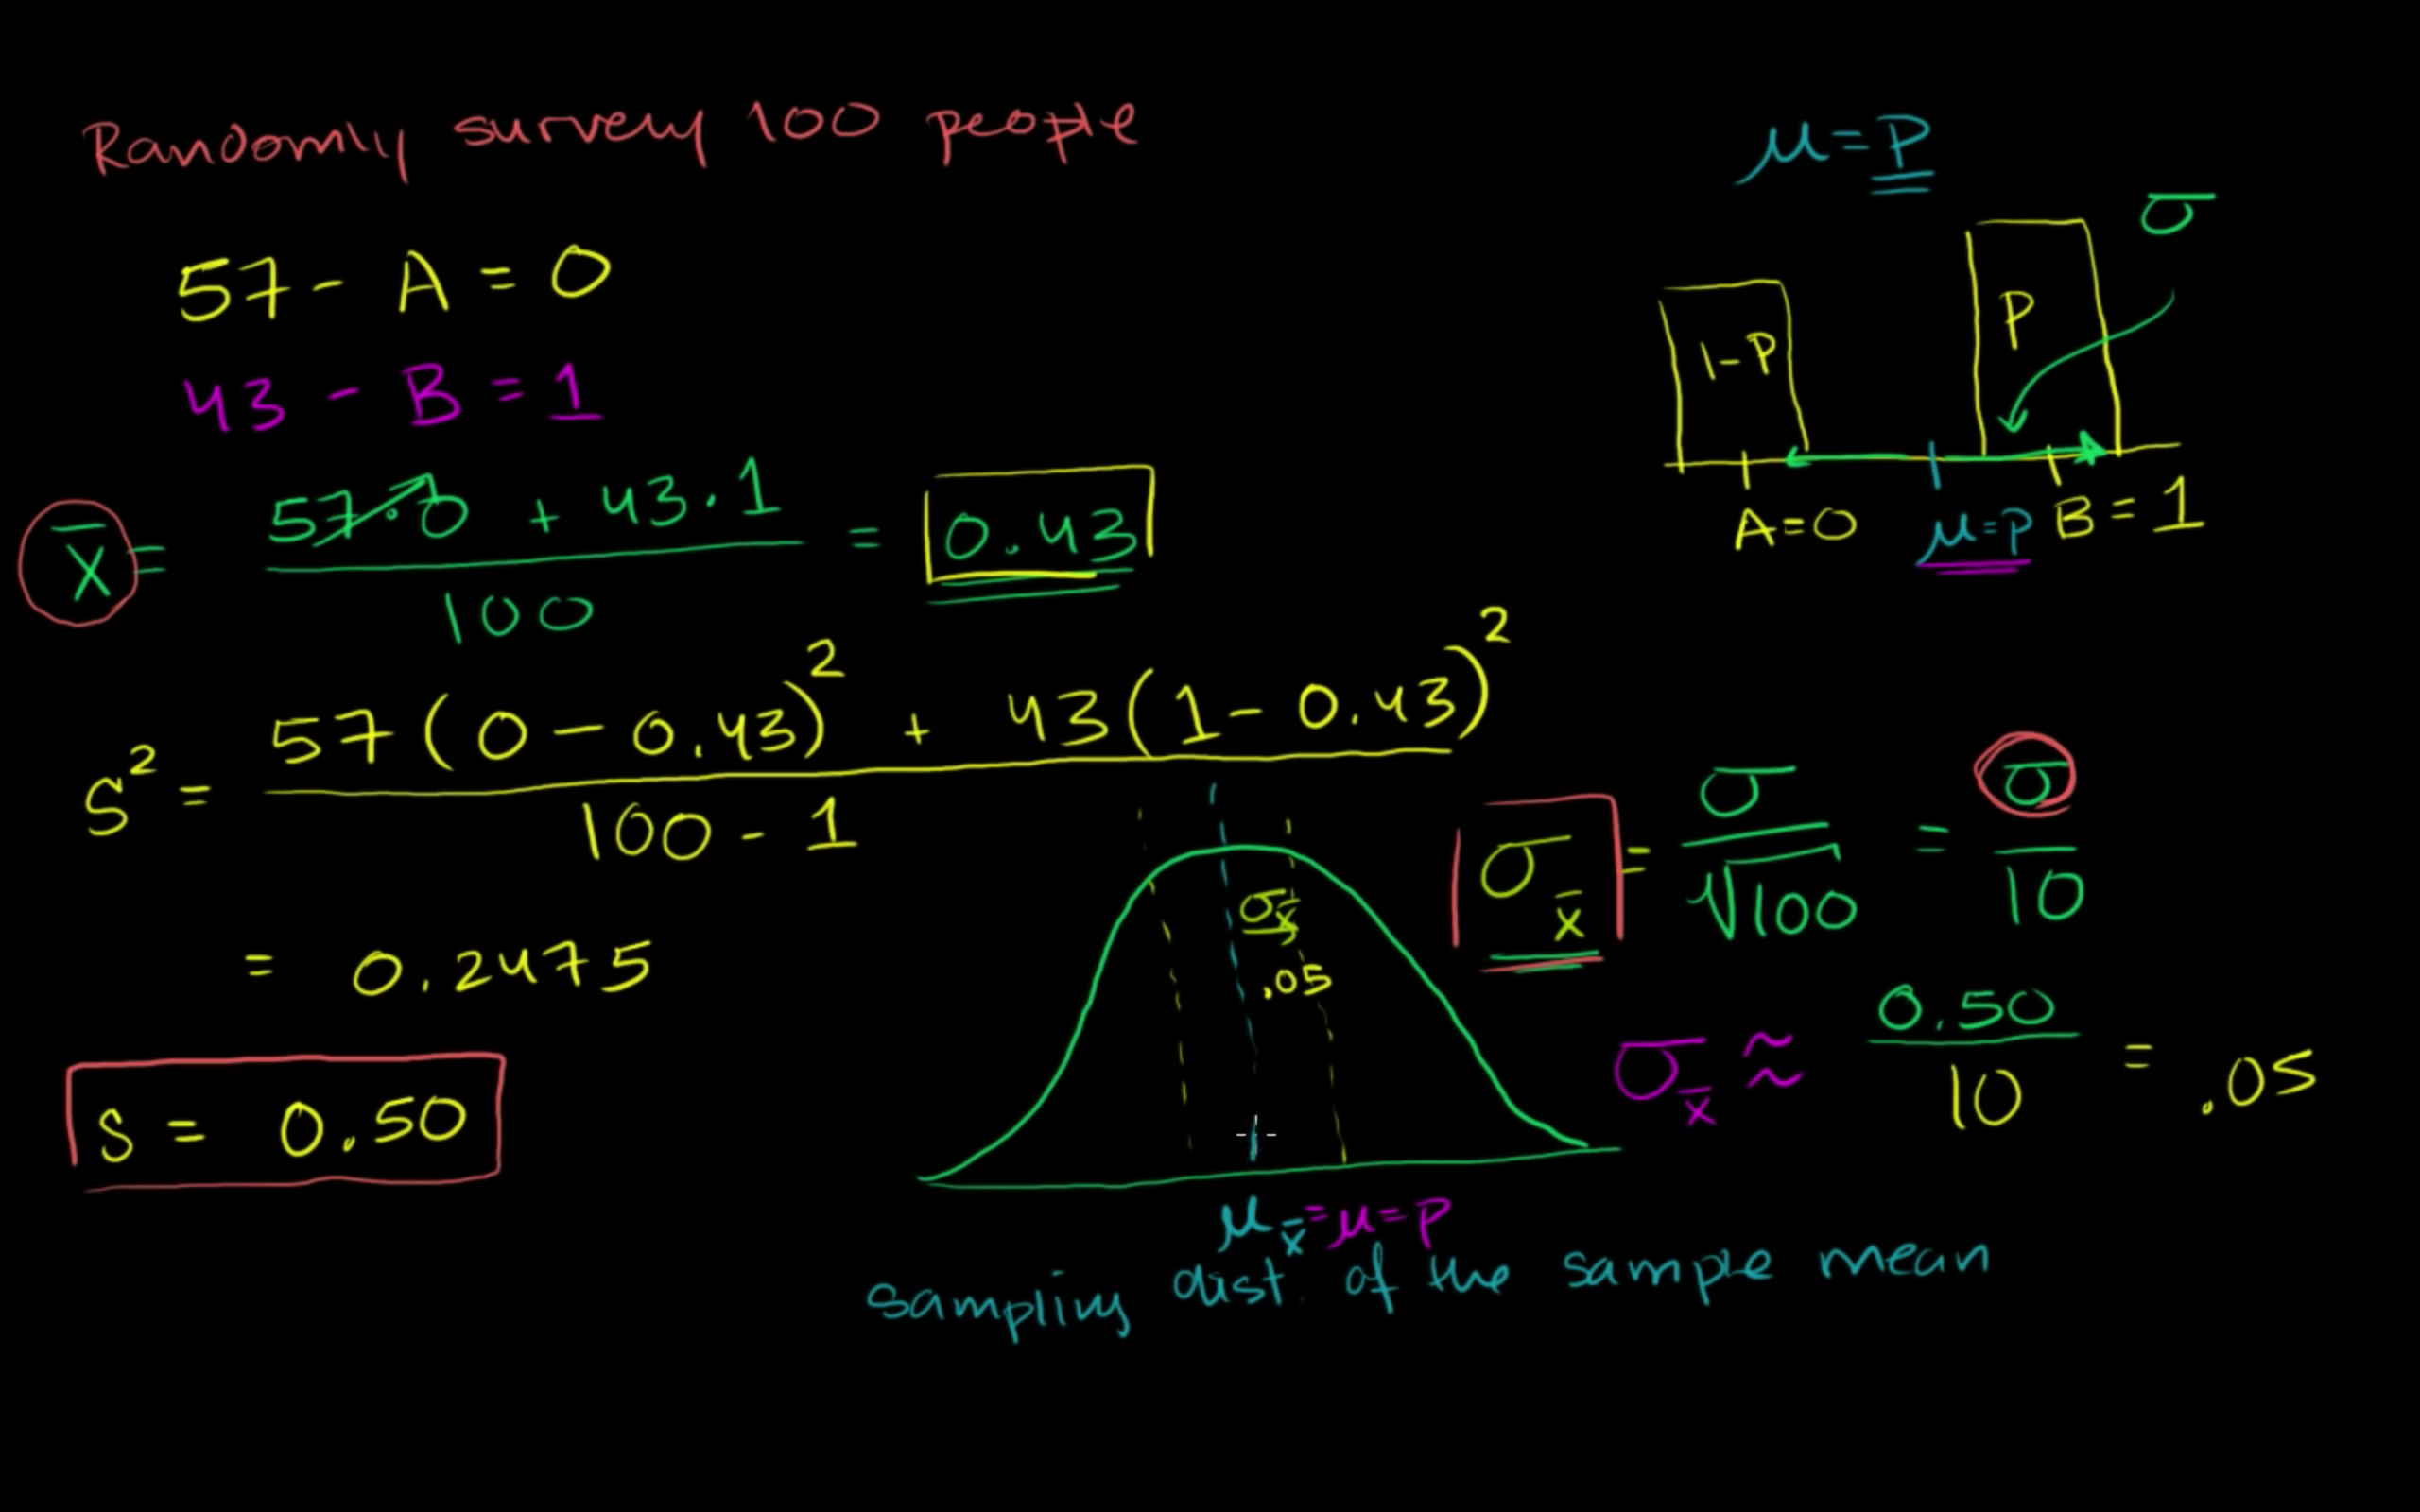 Randomly survey 100 people
57 - A = 0
43 - B = 1
x̄ = (57·0 + 43·1) / 100 = 0.43
S² = (57(0 - 0.43)² + 43(1 - 0.43)²) / (100 - 1)
= 0.2475
S = 0.50
μ = P
σ
1-P
P
A=0
μ=P
B=1
σx̄ = σ/√100 = σ/10
σx̄ ≈ 0.50/10 = .05
σx̄
.05
μx̄ = μ = P
sampling dist. of the sample mean